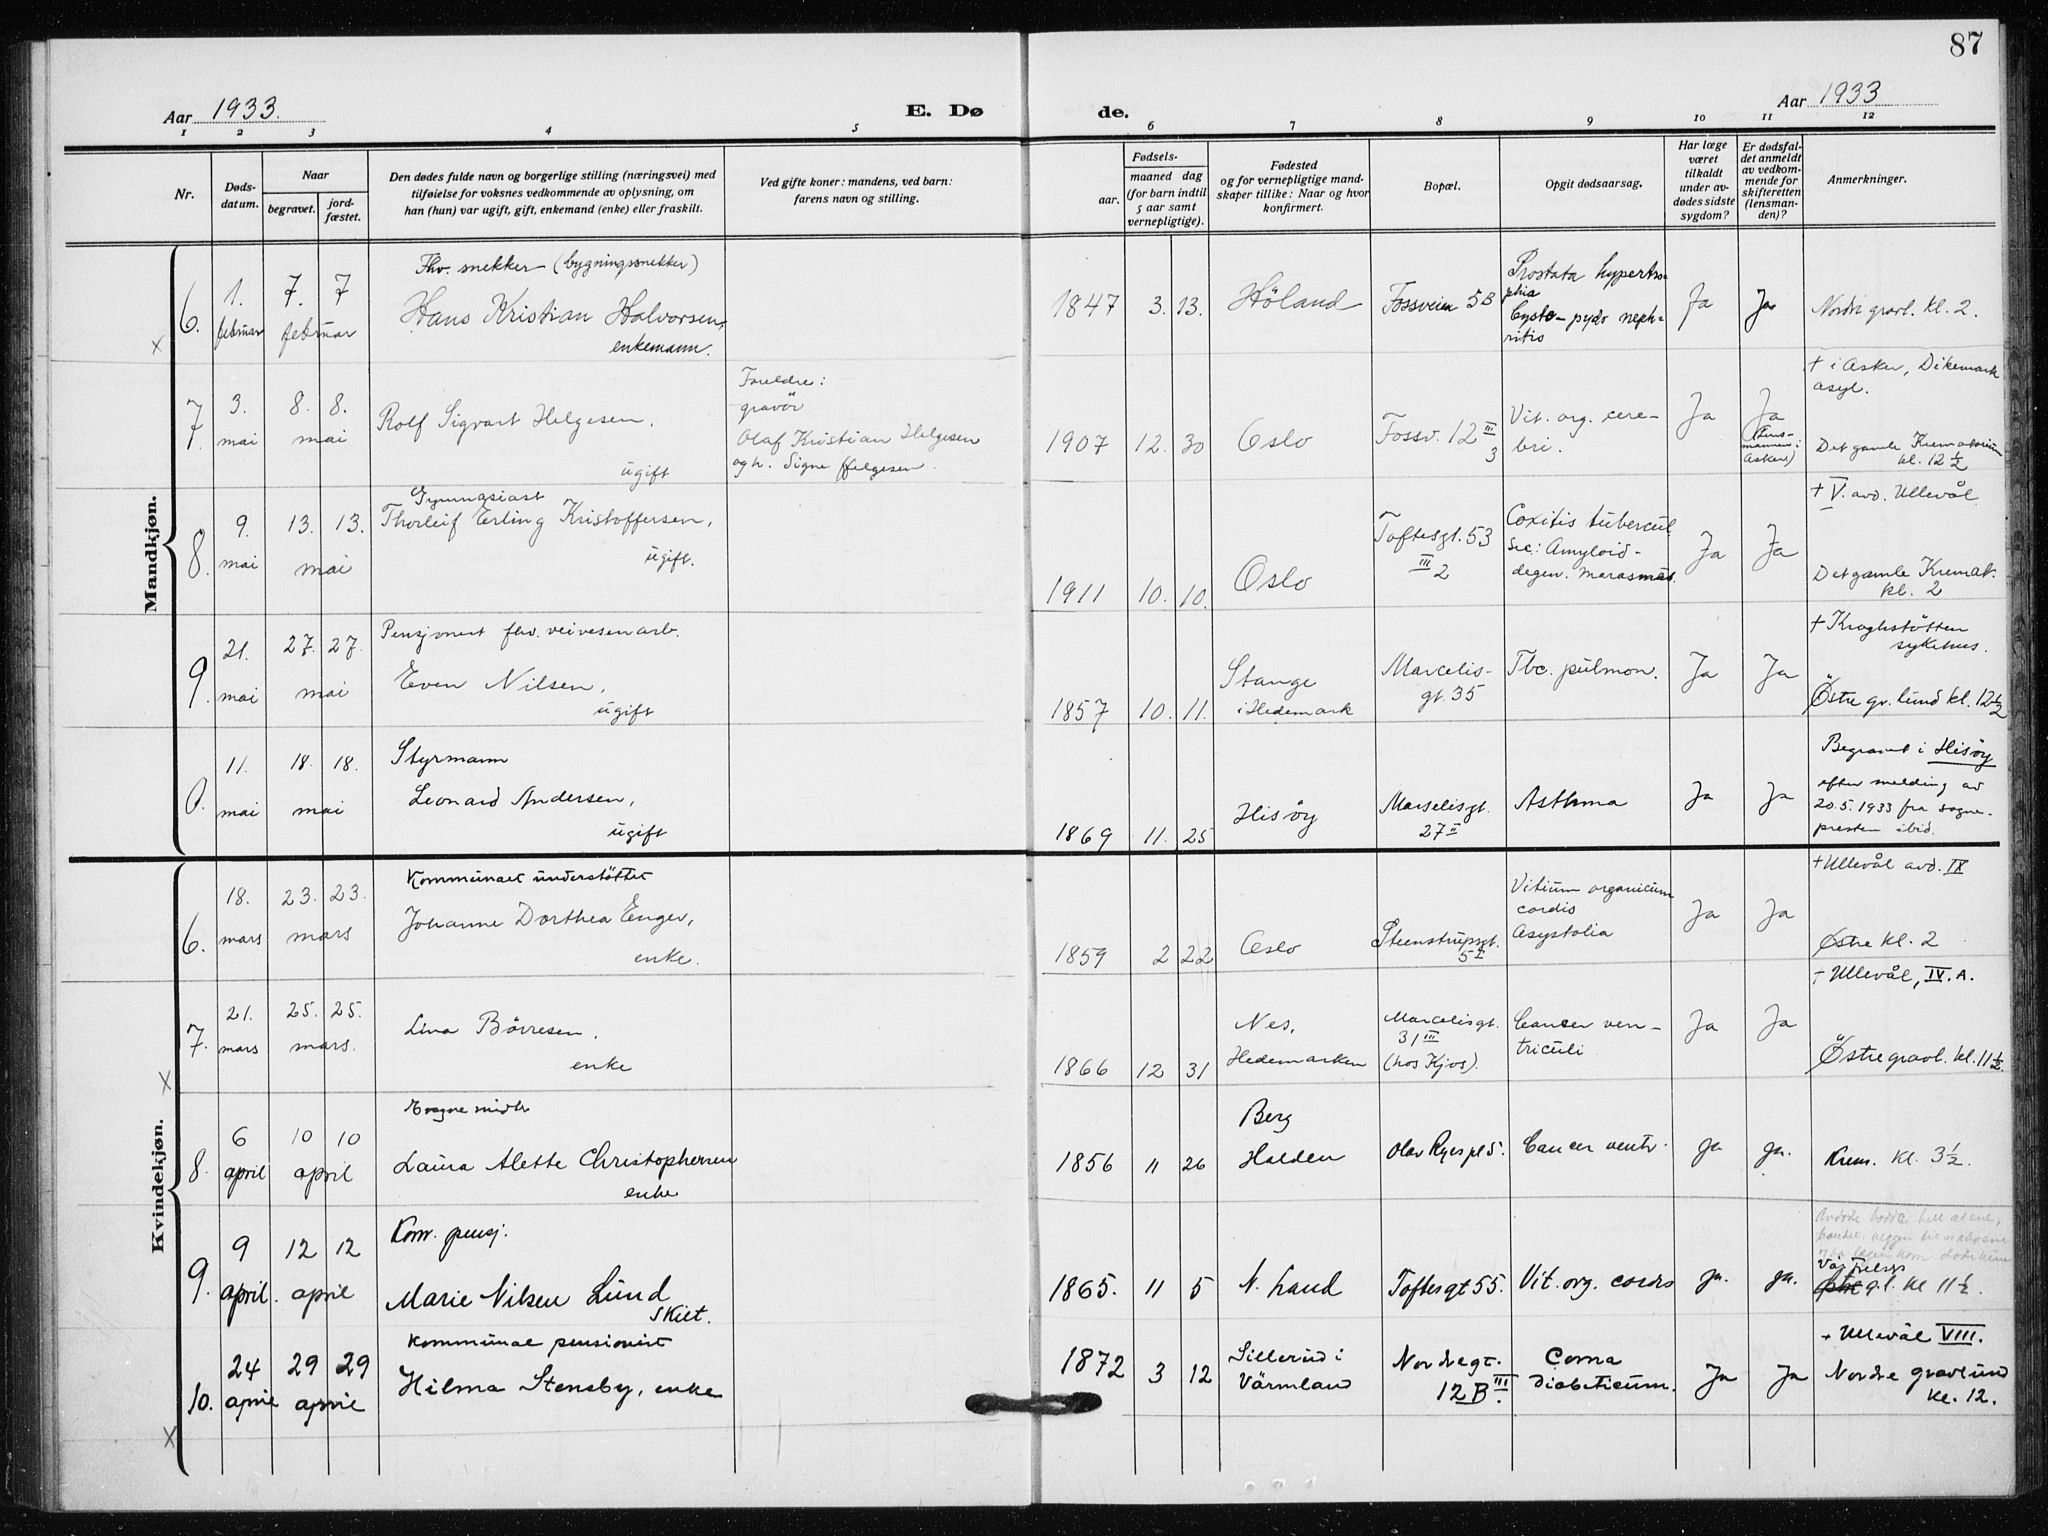 87
Aar 1933.
E. Dø
de.
Aar 1933
1 2 3 4 5 6 7 8 9 10 11 12
Nr.
Døds-
datum.
Naar
begravet.
jord-
fæstet.
Den dødes fulde navn og borgerlige stilling (næringsvei) med
tilføielse for voksnes vedkommende av oplysning, om
han (hun) var ugift, gift, enkemand (enke) eller fraskilt.
Ved gifte koner: mandens, ved barn:
farens navn og stilling.
Fødsels-
aar.
maaned dag
(for barn indtil
5 aar samt
vernepligtige).
Fødested
og for vernepligtige mand-
skaper tillike: Naar og hvor
konfirmert.
Bopæl.
Opgit dødsaarsag.
Har læge
været
tilkaldt
under av-
dødes sidste
sygdom?
Er dødsfal-
det anmeldt
av vedkom-
mende for
skifteretten
(lensman-
den)?
Anmerkninger.
Mandkjøn.
6.
1.
februar
7. 7
februar
Fhv. snekker (bygningssnekker)
Hans Kristian Halvorsen,
enkemann.
1847 3. 13.
Höland
Fossveien 5B
Prostata hypertro-
phia
Cysto-pyelo neph-
ritis
Ja
Ja
Nordre gravl. kl. 2.
x
7.
3.
mai
8. 8.
mai
Rolf Sigvart Helgesen,
ugift
Foreldre:
gravör
Olaf Kristian Helgesen
og h. Signe Helgesen.
1907 12. 30
Oslo
Fossv. 12 III
3
Vit. org. cere-
bri.
Ja
Ja
(Lens-
mannen i
Asker)
+ i Asker, Dikemark
asyl.
Det gamle Krematorium
kl. 12 1/2
8.
9.
mai
13. 13.
mai
Gymnasiast
Thorleif Erling Kristoffersen,
ugift.
1911 10. 10.
Oslo
Toftesgt. 53
III 2
Coxitis tubercul.
Sec: Amyloid-
degen. marasmus.
Ja
Ja
+ V. avd. Ullevål
Det gamle Kremat.
kl. 2
9.
21.
mai
27. 27.
mai
Pensjonert fhv. veivesenarb.
Even Nilsen,
ugift
1857 10. 11.
Stange
i Hedemark
Marcelis-
gt. 35
Tbc. pulmon.
Ja
Ja
+ Kroghstötten
sykehus.
Östre gr. lund kl. 12 1/2
0.
11.
mai
18. 18.
mai
Styrmann
Leonard Andersen,
ugift
1869 11. 25
Hisöy
Marselisgt.
27 II
Asthma
Ja
Ja
Begravet i Hisöy
efter melding av
20.5.1933 fra sogne-
presten ibid.
Kvindekjøn.
6.
18.
mars
23. 23.
mars
Kommunalt understöttet
Johanne Dorthea Enger,
enke.
1859 2 22
Oslo
Steenstrupsgt.
5 I
Vitium organicum
cordis
Asystolia
Ja
Ja
+ Ullevål avd. IX
Östre kl. 2
7.
21.
mars
25. 25.
mars.
Lina Bövresen,
enke
1866 12 31
Nes,
Hedemarken
Marcelisgt.
31 III
(hos Kjos).
Cancer ven-
triculi
Ja
Ja
+ Ullevål, IV. A.
Östre gravl. kl. 11 1/2.
x
8.
6
april
10 10
april
Egne midler
Laura Alette Christophersen
enke
1856 11 26
Berg
Halden
Olav Ryes pl 5.
Cancer ventr.
Ja
ja.
Krem. kl. 3 1/2.
9.
9
april.
12 12
april
Kom. pensj.
Marie Nilsen Lund
skilt.
1865. 11 5
N. Land
Toftesgt 55.
Vit. org. cordis
ja.
ja.
Vår Frelsers
Østre g.l. kl 11 1/2.
10.
24
april
29 29
april
Kommunal pensionist
Hilma Stensby, enke
1872 3 12
Sillerud i
Värmland
Nordregt.
12 B III.
Coma
diabeticum.
Ja
Ja
+ Ullevål VIII.
Nordre gravlund
kl. 12.
x